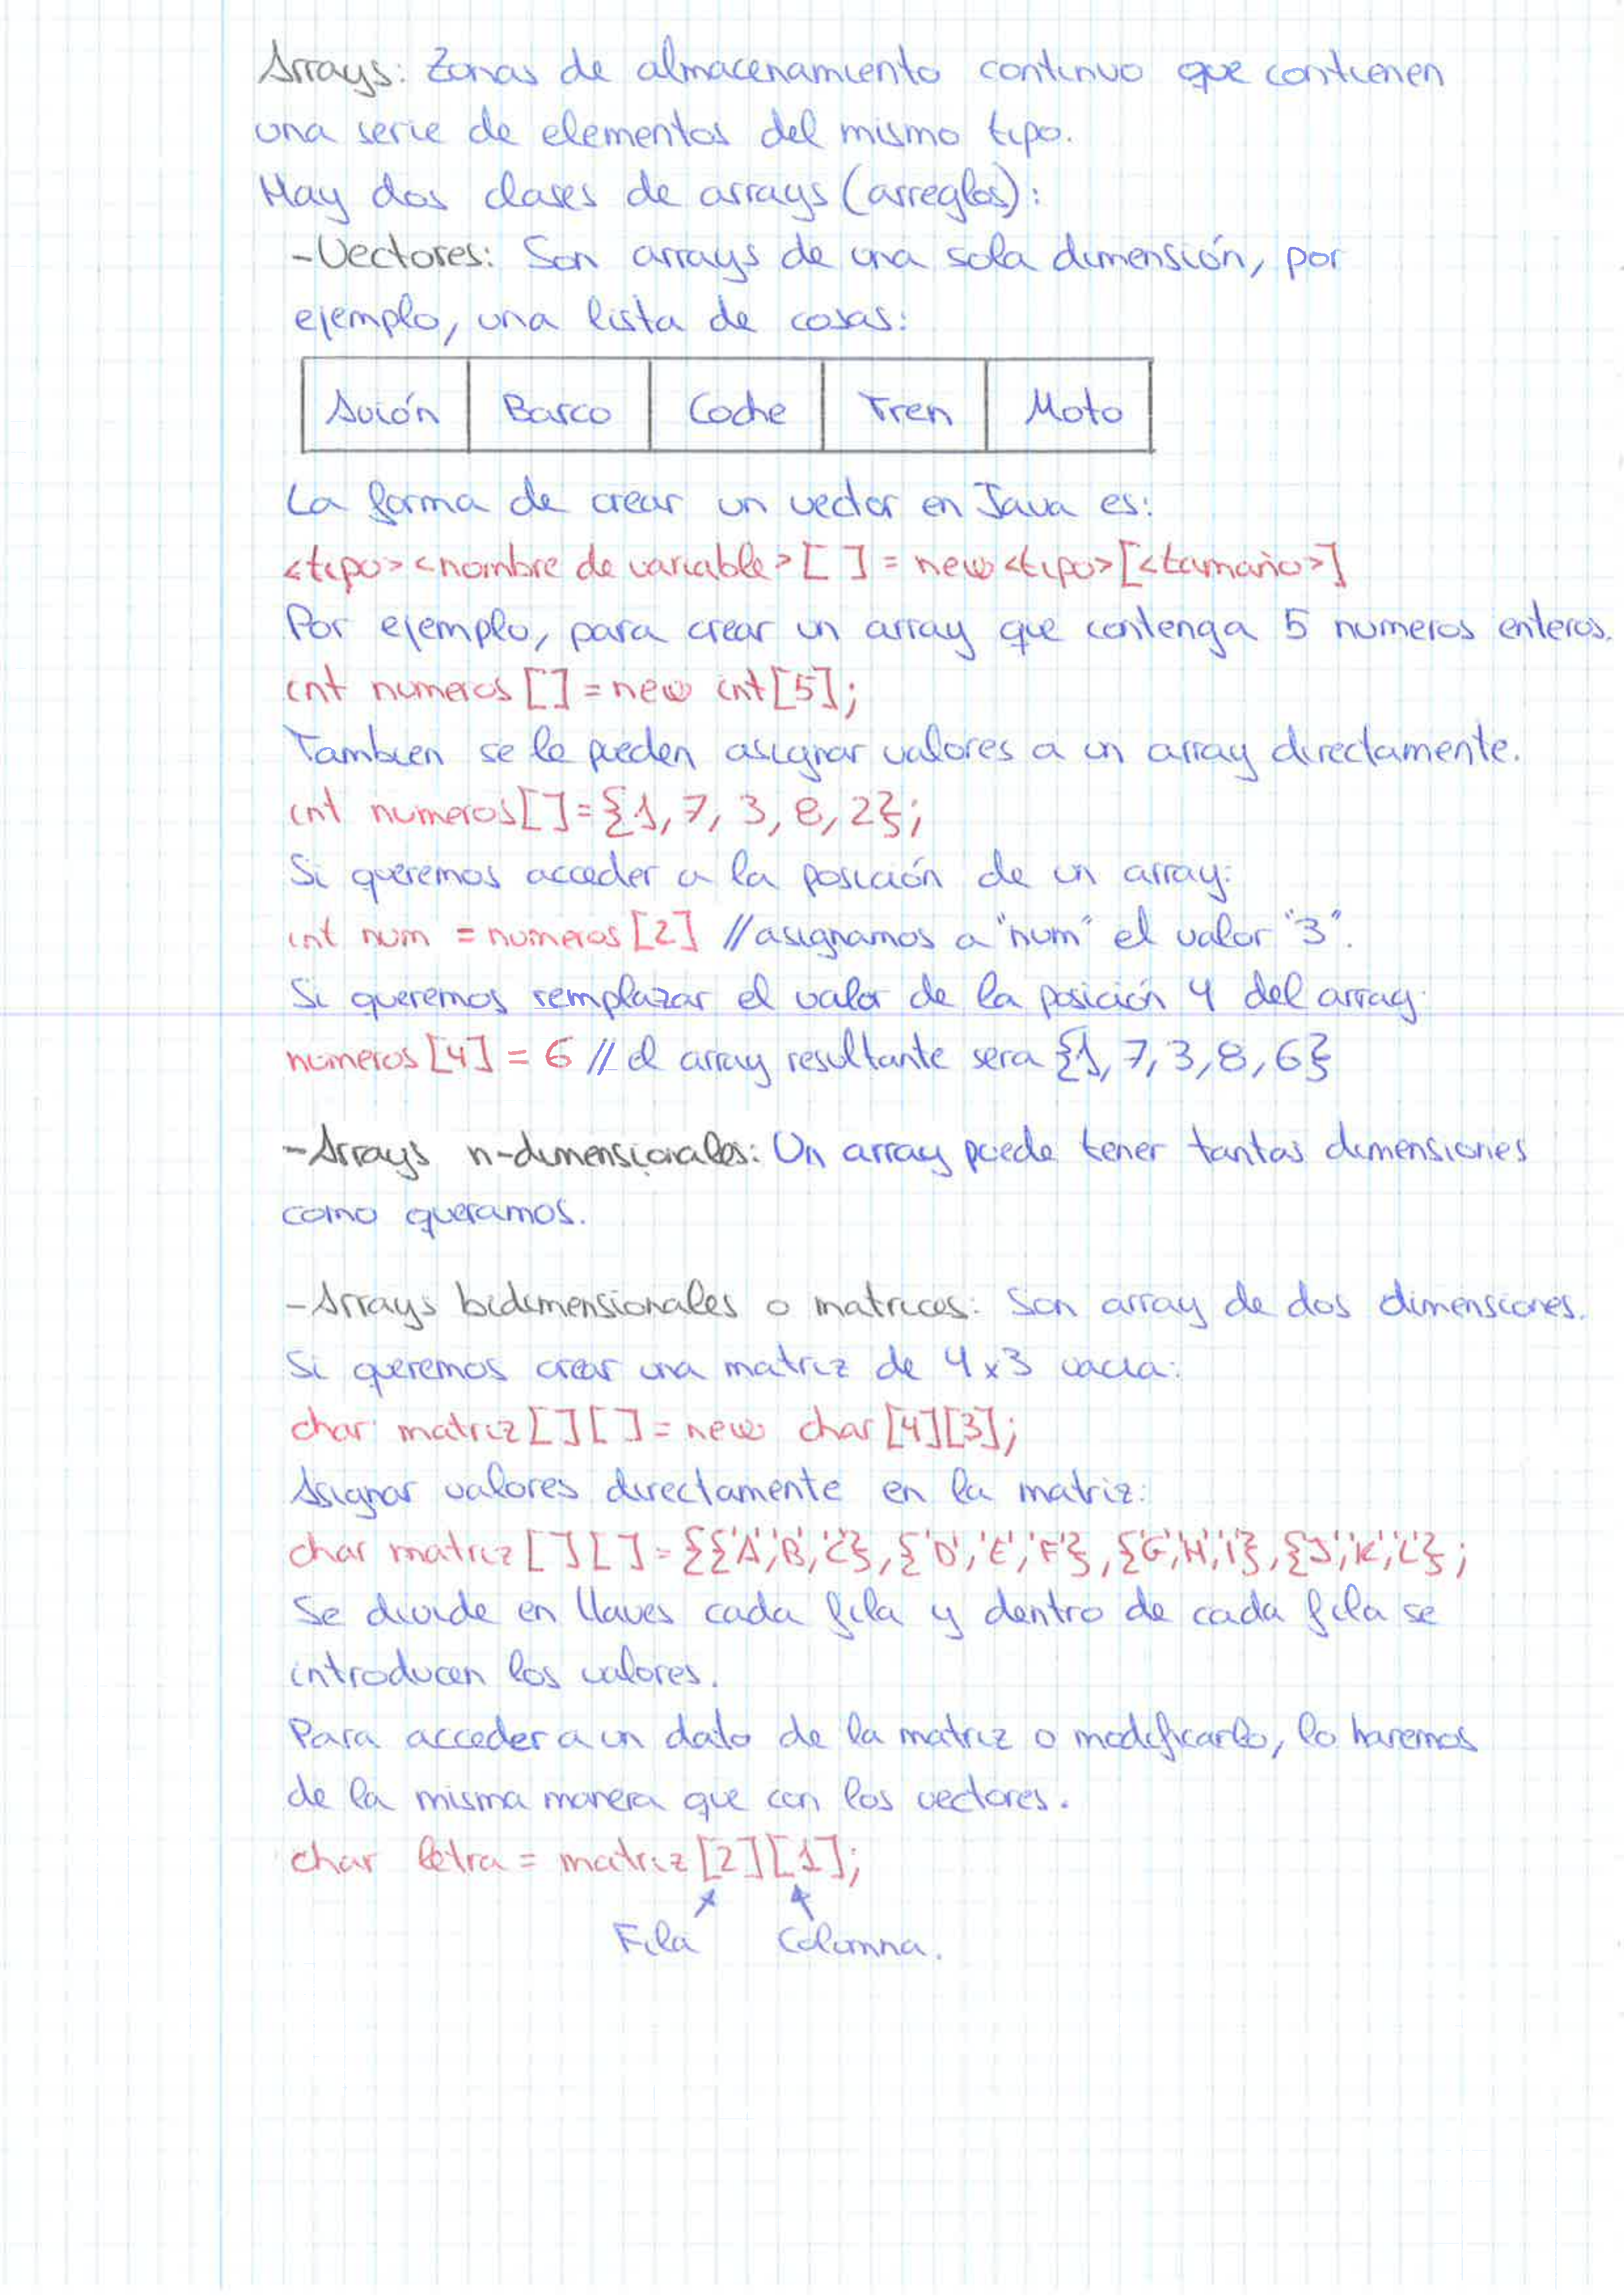 Arrays: Zonas de almacenamiento continuo que contienen
una serie de elementos del mismo tipo.
Hay dos clases de arrays (arreglos):
-Vectores: Son arrays de una sola dimensión, por
ejemplo, una lista de cosas:
Avión Barco Coche Tren Moto
La forma de crear un vector en Java es:
<tipo> <nombre de variable> [ ] = new <tipo> [<tamaño>]
Por ejemplo, para crear un array que contenga 5 numeros enteros.
int numeros [] = new int[5];
Tambien se le pueden asignar valores a un array directamente.
int numeros[] = {1, 7, 3, 8, 2};
Si queremos acceder a la posición de un array:
int num = numeros [2] //asignamos a "num" el valor "3".
Si queremos remplazar el valor de la posición 4 del array.
numeros [4] = 6 // el array resultante sera {1, 7, 3, 8, 6}
-Arrays n-dimensionales: Un array puede tener tantas dimensiones
como queramos.
-Arrays bidimensionales o matrices: Son array de dos dimensiones.
Si queremos crear una matriz de 4x3 vacia:
char matriz [ ] [ ] = new char [4][3];
Asignar valores directamente en la matriz:
char matriz [ ] [ ] = {{'A','B','C'}, {'D','E','F'}, {'G','H','I'}, {'J','K','L'};
Se divide en llaves cada fila y dentro de cada fila se
introducen los valores.
Para acceder a un dato de la matriz o modificarlo, lo haremos
de la misma manera que con los vectores.
char letra = matriz [2][1];
Fila Columna.